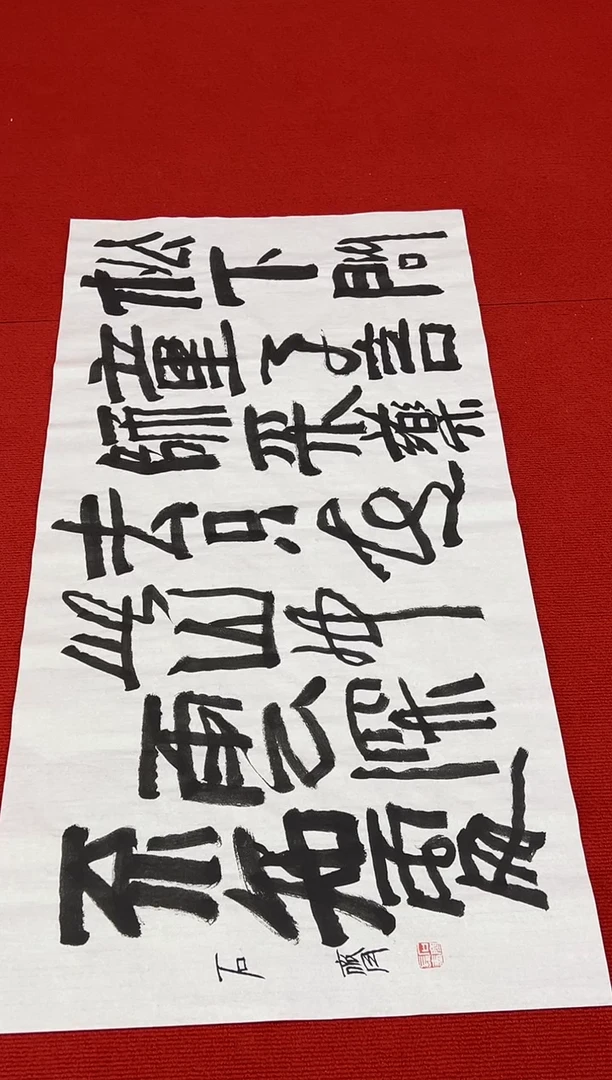 松下問
童子言
師采藥
去只在
此山中
雲深
不知處
石齋